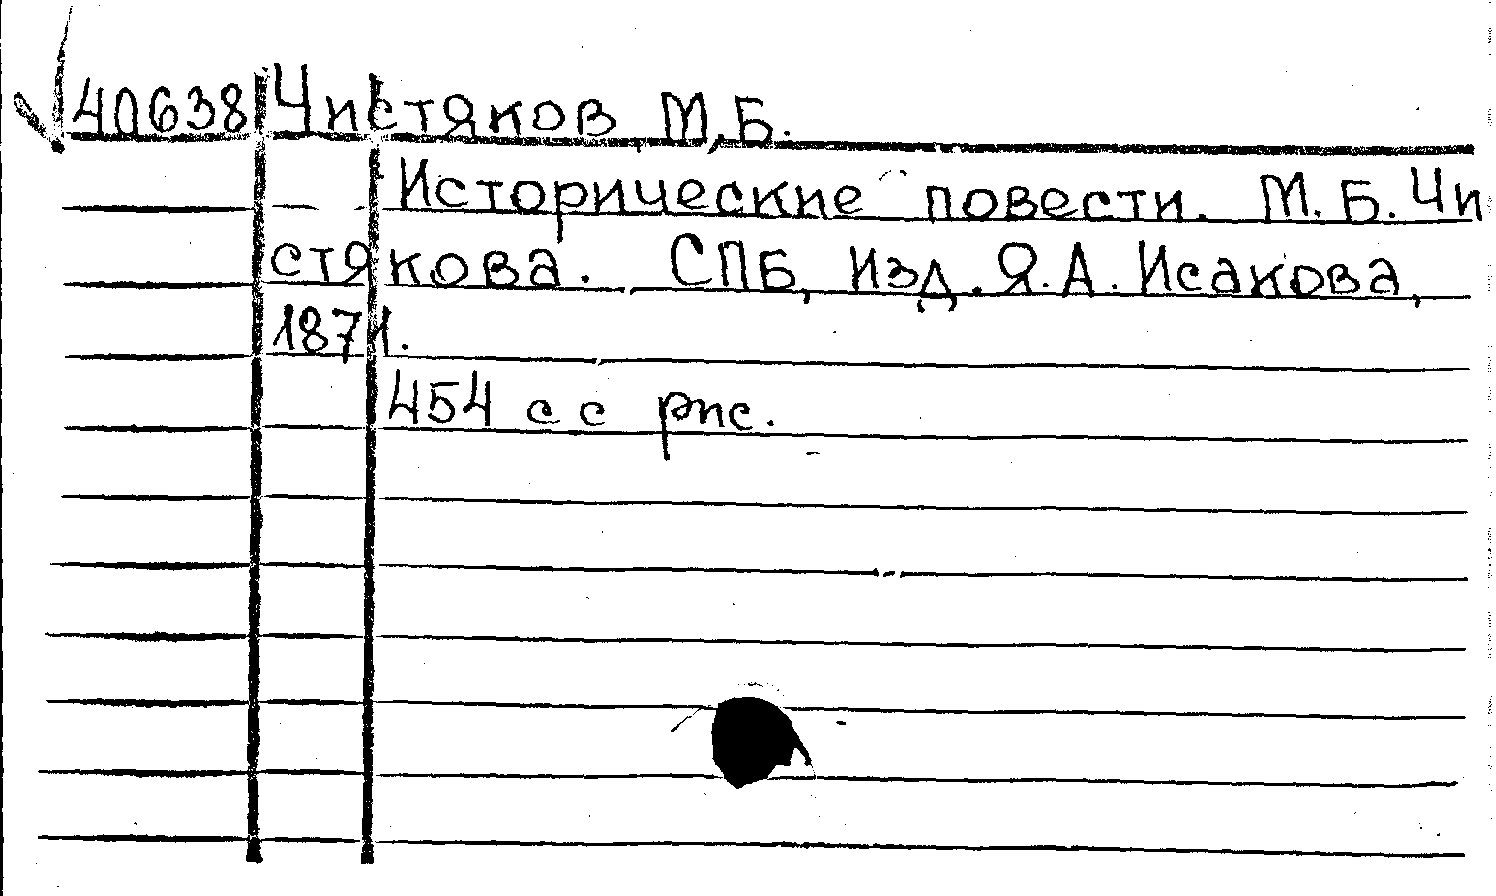 40638 Чистяков М.Б.
Исторические повести. М.Б.Чи
стякова. СПБ, Изд.Я.А.Исакова,
1871.
454 с с рис.